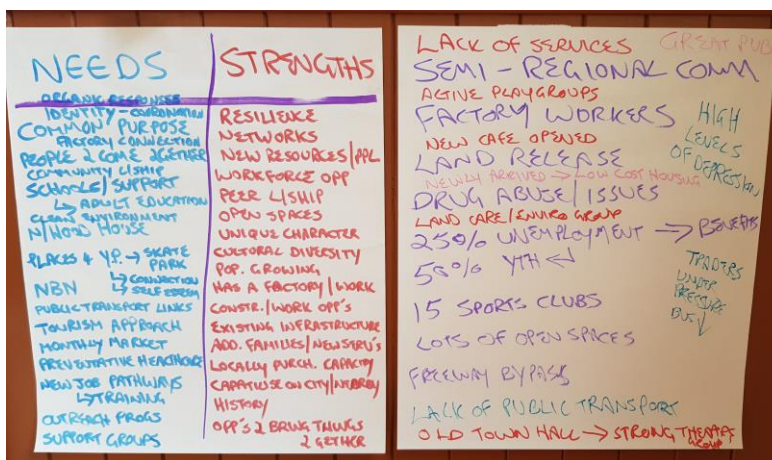 NEEDS
ORGANIC RESPONSES
IDENTITY - COORDINATION
COMMON PURPOSE
FACTORY CONNECTION
PEOPLE 2 COME 2GETHER
COMMUNITY L/SHIP
SCHOOLS/SUPPORT
↳ ADULT EDUCATION
CLEAN ENVIRONMENT
N/HOOD HOUSE
PLACES 4 Y.P. → SKATE
PARK
↳ CONNECTION
↳ SELF ESTEEM
NBN
PUBLIC TRANSPORT LINKS
TOURISM APPROACH
MONTHLY MARKET
PREVENTATIVE HEALTHCARE
NEW JOB PATHWAYS
↳ TRAINING
OUTREACH PROGS
SUPPORT GROUPS
STRENGTHS
RESILIENCE
NETWORKS
NEW RESOURCES/PPL
WORKFORCE OPP
PEER L/SHIP
OPEN SPACES
UNIQUE CHARACTER
CULTURAL DIVERSITY
POP. GROWING
HAS A FACTORY/WORK
CONSTR./WORK OPP'S
EXISTING INFRASTRUCTURE
ADD. FAMILIES/NEW SERV'S
LOCALLY PURCH. CAPACITY
CAPATILISE ON CITY/NEARBY
HISTORY
OPP'S 2 BRING THINGS
2 GETHER
LACK OF SERVICES
GREAT PUB
SEMI - REGIONAL COMM
ACTIVE PLAYGROUPS
FACTORY WORKERS
NEW CAFE OPENED
LAND RELEASE
NEWLY ARRIVED → LOW COST HOUSING
DRUG ABUSE/ISSUES
LAND CARE/ENVIRO GROUP
25% UNEMPLOYMENT → BENEFITS
50% YTH ↵
15 SPORTS CLUBS
LOTS OF OPEN SPACES
FREEWAY BYPASS
LACK OF PUBLIC TRANSPORT
OLD TOWN HALL → STRONG THEATRE
GROUP
HIGH
LEVELS
OF DEPRESSION
TRADERS
UNDER
PRESSURE
BUS ↓